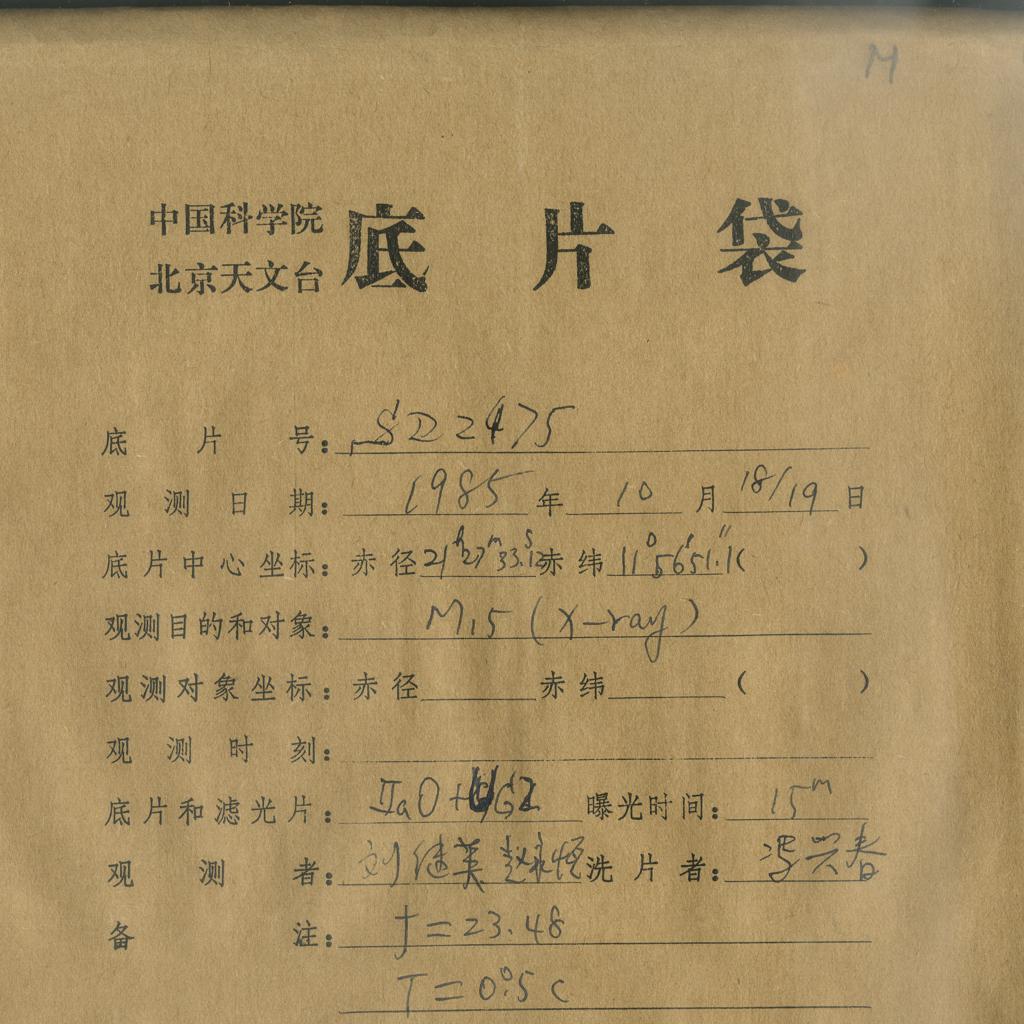 M
中国科学院
北京天文台
底片袋
底片号：SD2475
观测日期：1985年10月18/19日
底片中心坐标：赤径21ʰ27ᵐ33.12ˢ赤纬11°56′51.1″( )
观测目的和对象：M15 (X-ray)
观测对象坐标：赤径 赤纬 ( )
观测时刻：
底片和滤光片：IIaO+UG2 曝光时间：15ᵐ
观测者：刘继英 赵永恒 洗片者：兴春
备注：f=23.48
T=0°.5 C